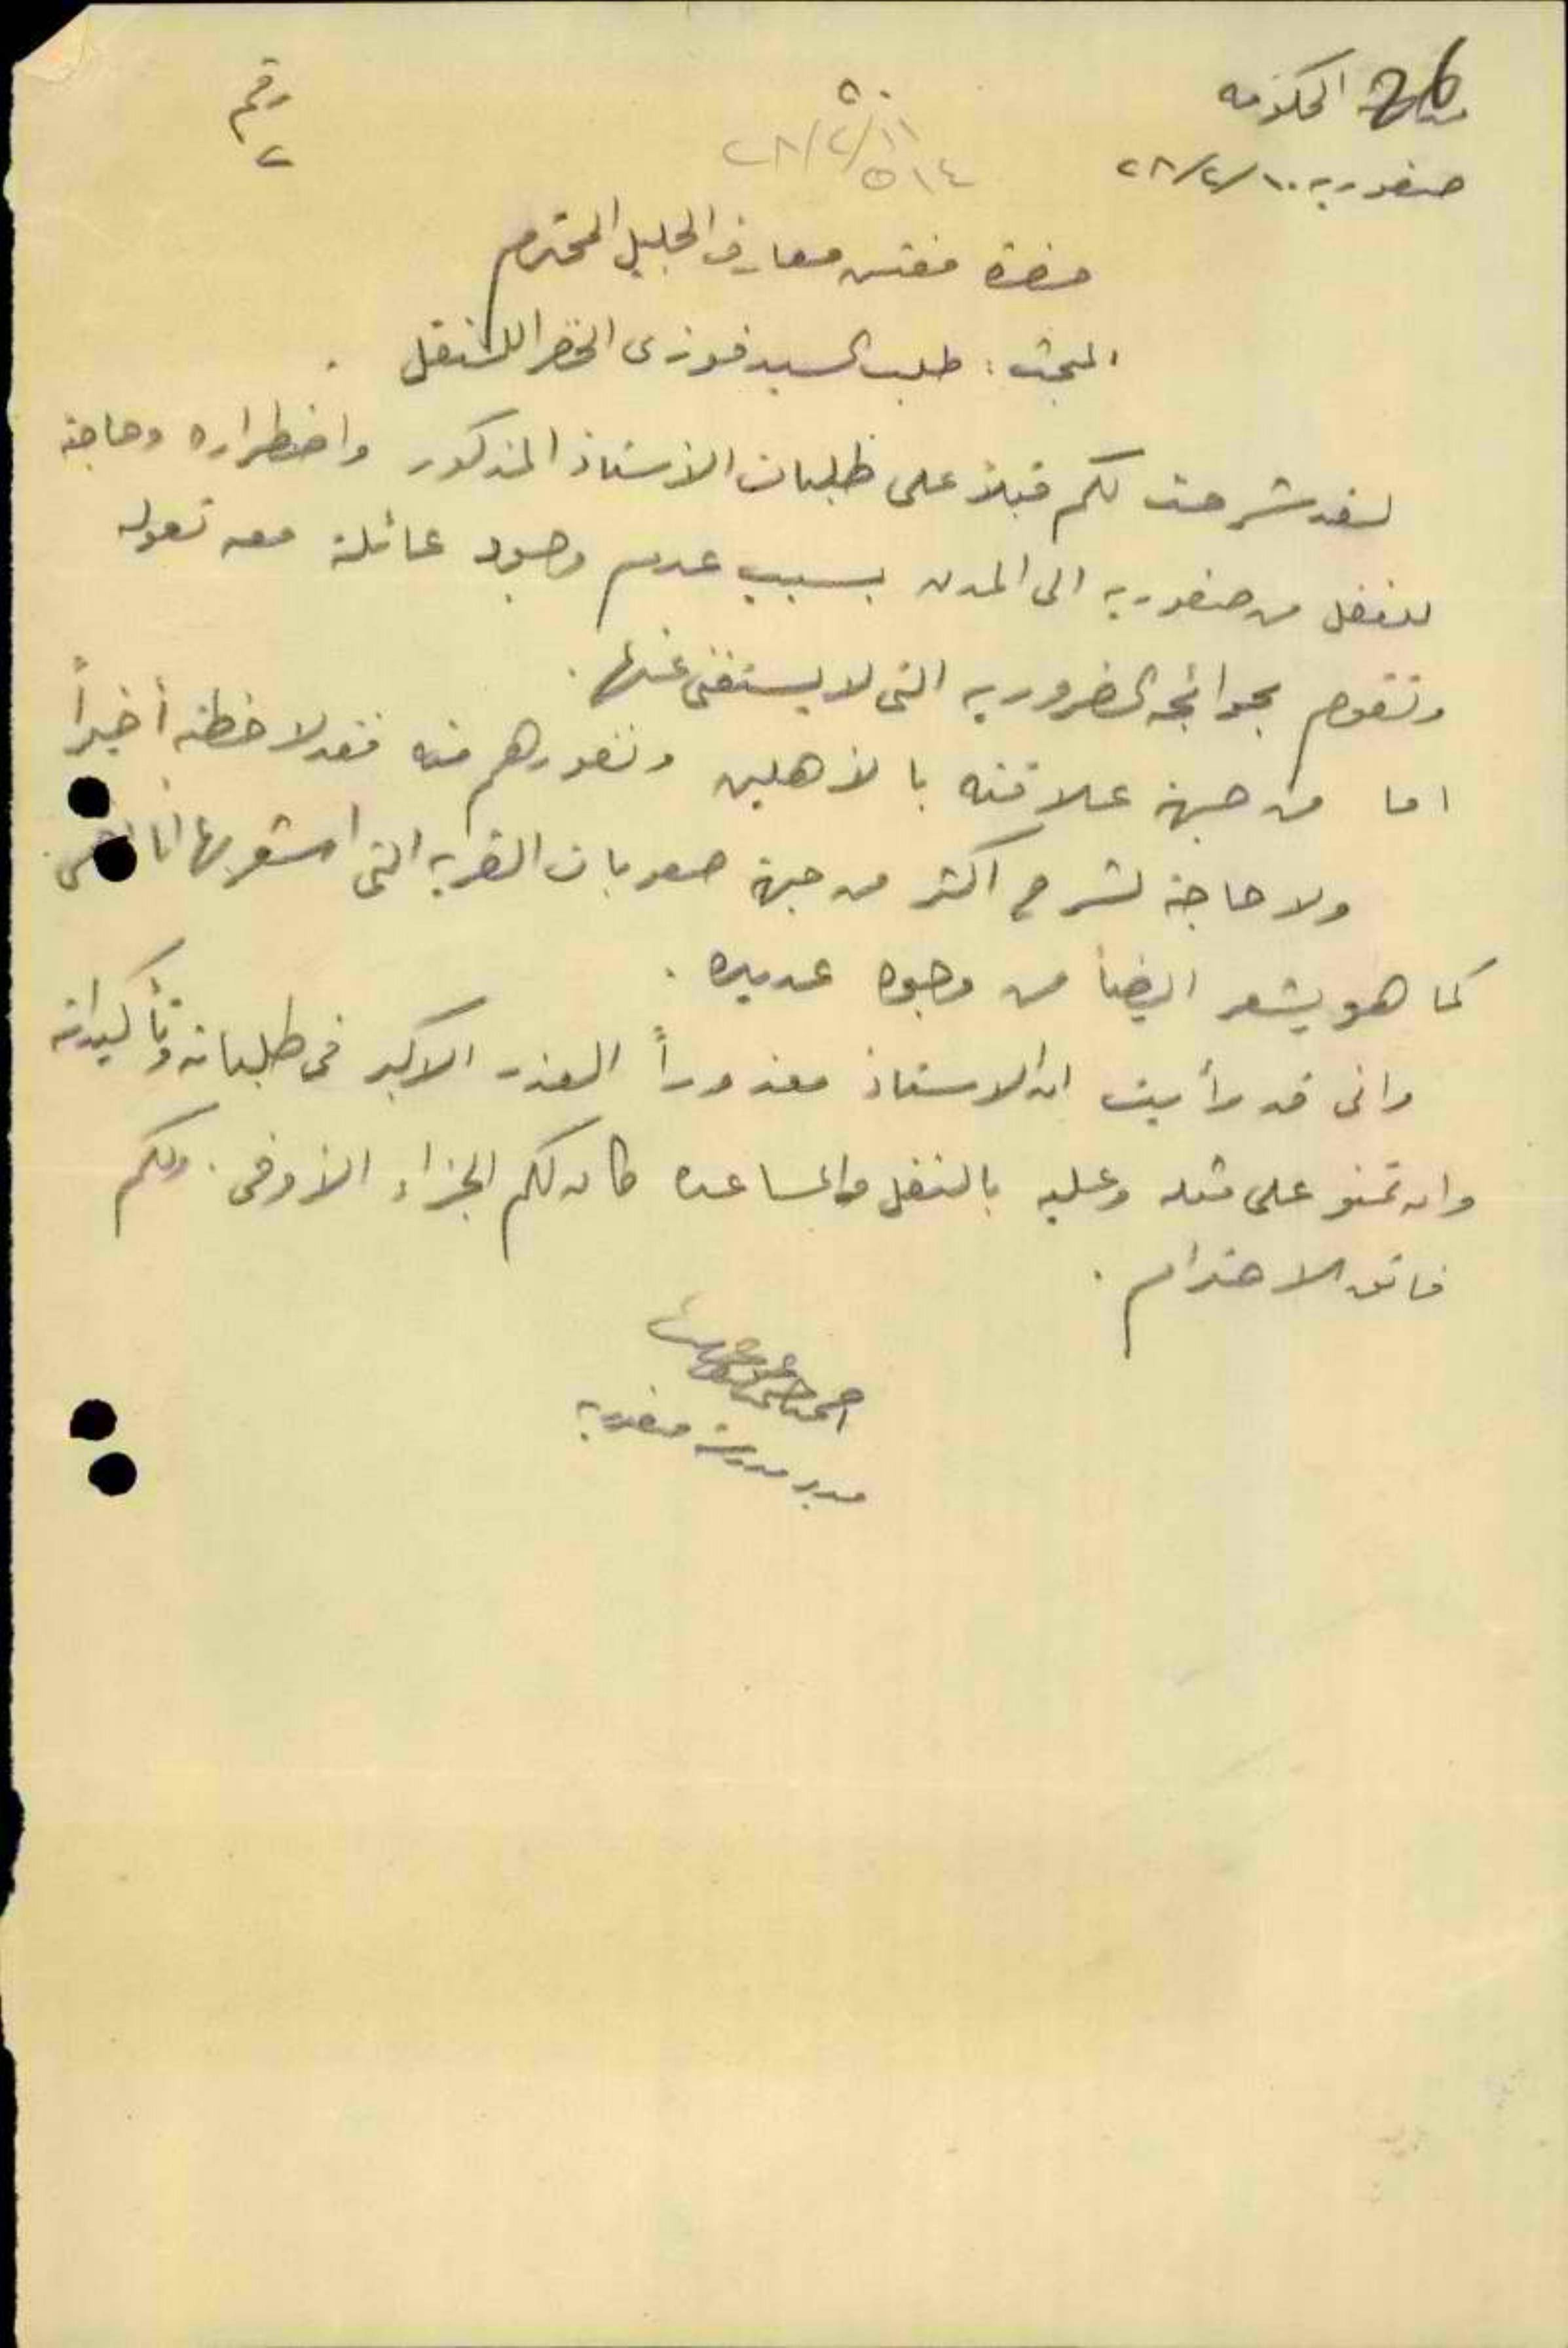 26 الحكومه
صفوريه ١٠/٢/٢٨
رقم
٢
٥٠
١١/٢/٢٨
٥١٤
حضرة مفتش معارف الجليل المحترم
المبحث : طلب السيد فوزى الخضرا للنقل .
لقد شرحت لكم قبلاً على طلبات الأستاذ المذكور واضطراره وحاجة
للنقل من صفوريه الى المدن بسبب عدم وجود عائلة معه تعوله
وتقوم بحوائجه الضروريه التى لا يستغنى عنها .
اما من جهة علاقته بالأهلين ونفورهم منه فقد لاحظته أخيراً
ولا حاجة لشرح اكثر من جهة صعوبات القريه التى اشعر بها انا نفسى
كما هو يشعر ايضاً من وجوه عديده .
وانى قد رأيت ان الاستاذ معذوراً العذر الاكبر فى طلباته وتأكيداته
وان تمنو على مثله وعليه بالنقل والمساعده كان لكم الجزاء الأوفى . ولكم
فائق الاحترام .
مدير مدرسة صفوريه